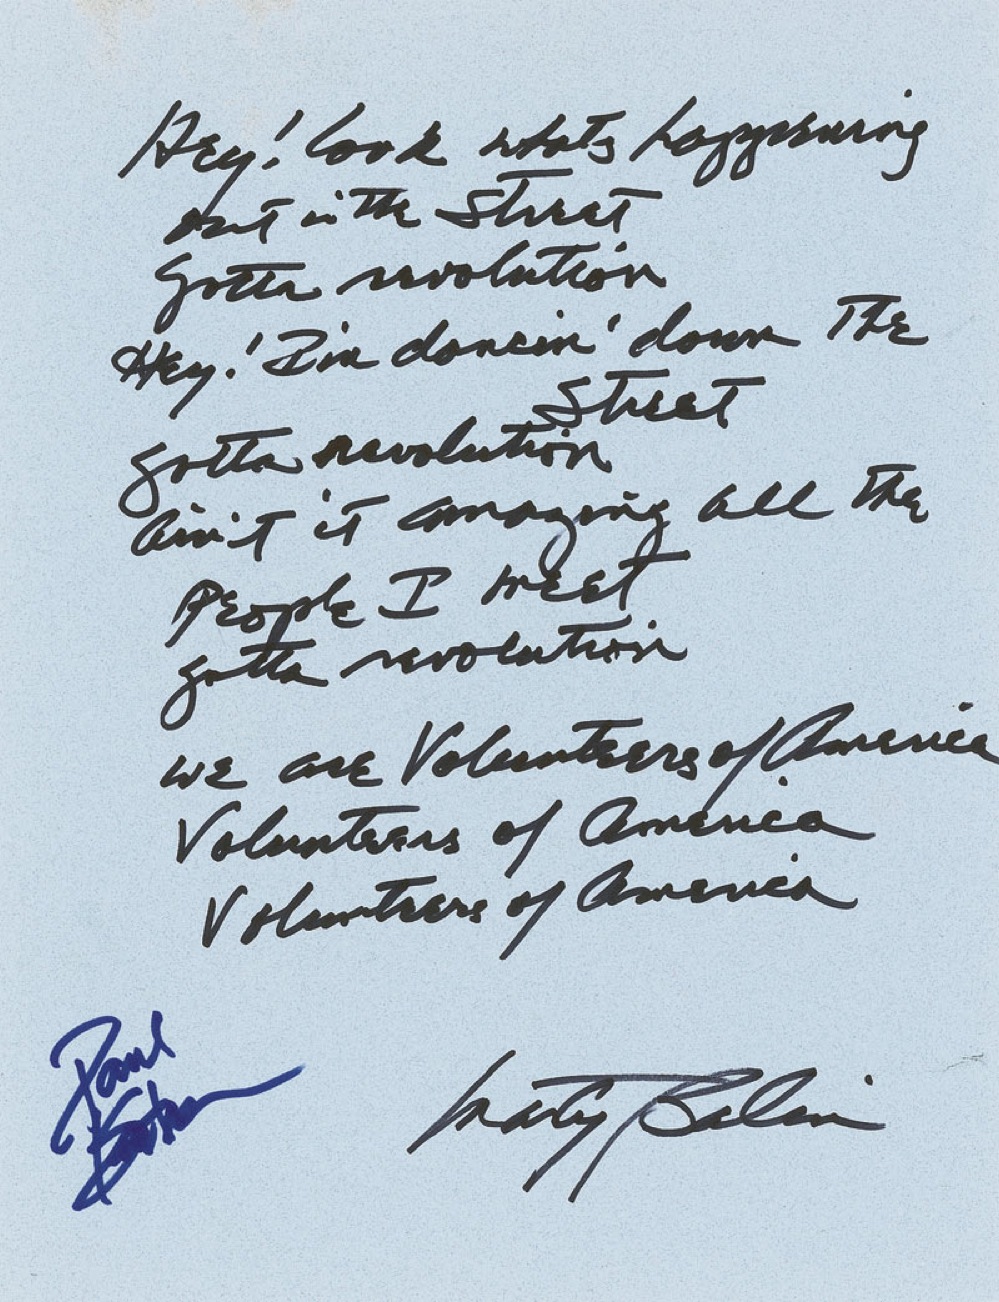 Hey! look whats happening
out in the Street
Gotta revolution
Hey! I'm dancin' down The
Street
gotta revolution
ain't it amazing all The
People I meet
gotta revolution
we are Volunteers of America
Volunteers of America
Volunteers of America
Paul
Kantner
Marty Balin